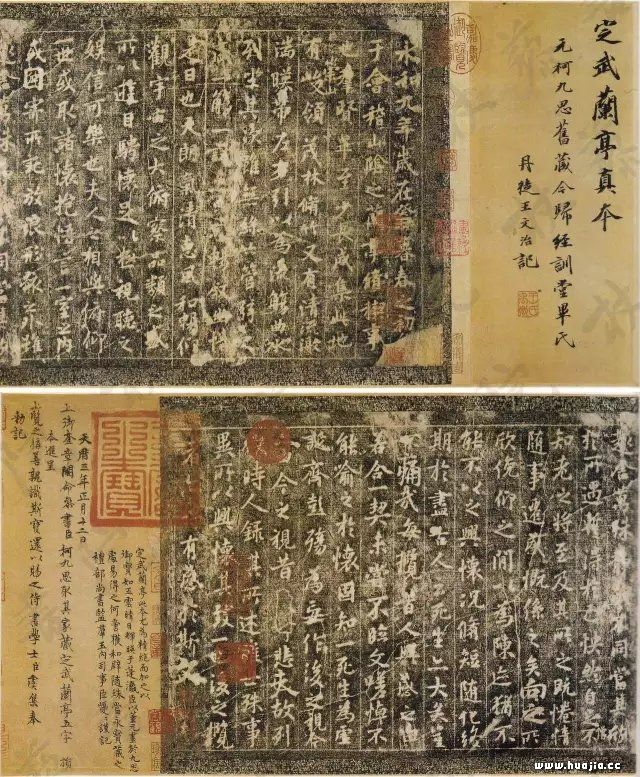 定武蘭亭真本
元柯九思舊藏今歸經訓堂畢氏
丹徒王文治記
永和九年歲在癸丑暮春之初
于會稽山陰之蘭亭脩稧事
也群賢畢至少長咸集此地
有峻領茂林脩竹又有清流激
湍暎帶左右引以為流觴曲水
列坐其次雖無絲竹管弦之
盛一觴一詠亦足以暢敘幽情
是日也天朗氣清惠風和暢仰
觀宇宙之大俯察品類之盛
所以遊目騁懷足以極視聽之
娛信可樂也夫人之相與俯仰
一世或取諸懷抱悟言一室之內
或因寄所託放浪形骸之外雖
趣舍萬殊靜躁不同當其欣
於所遇蹔得於己快然自足不
知老之將至及其所之既惓情
隨事遷感慨係之矣向之所
欣俛仰之間以為陳迹猶不
能不以之興懷況脩短隨化終
期於盡古人云死生亦大矣豈
不痛哉每攬昔人興感之由
若合一契未嘗不臨文嗟悼不
能喻之於懷固知一死生為虛
誕齊彭殤為妄作後之視今
亦由今之視昔悲夫故列
敘時人錄其所述雖世殊事
異所以興懷其致一也後之攬
者亦將有感於斯文
定武蘭亭此本尤為精絕而加之以
御寶如五雲晴日輝映於蓬瀛臣以董元畫於九思
處易得之何啻獲和璧隨珠當永寶藏之
禮部尚書監羣玉內司事臣巙巙謹記
天曆之寶
天曆三年正月十二日
上御奎章閣命參書臣柯九思取其家藏定武蘭亭五字損
本進呈
上覽之稱善親識斯寶還以賜之侍書學士臣虞集奉
勅記
www.huajia.cc